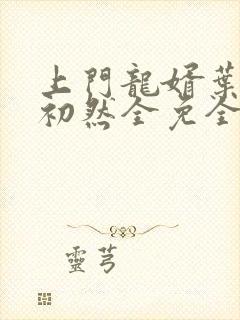 上門龍婿葉
初然全免全
靈芎